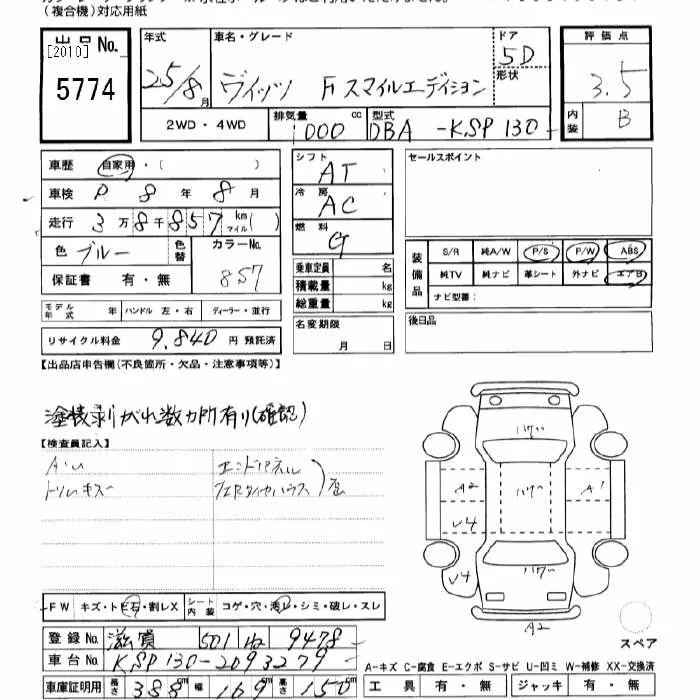 (複合機)対応用紙
出品No.
[2010]
5774
年式
25/8月
車名・グレード
ヴィッツ F スマイルエディション
ドア
5D
形状
評価点
3.5
内装
B
2WD・4WD
排気量
1000 cc
型式
DBA -KSP130-
車歴 自家用・( )
車検 R 8年 8月
走行 3万8千857 km マイル( )
色 ブルー
色替
カラーNo.
857
保証書 有・無
モデル年式 年
ハンドル 左・右
ディーラー・並行
リサイクル料金 9,840円 預託済
シフト
AT
冷房
AC
燃料
G
乗車定員 名
積載量 kg
総重量 kg
名変期限
月 日
セールスポイント
装備品
S/R 純A/W P/S P/W ABS
純TV 純ナビ 革シート 外ナビ エアB
ナビ型番:
後日品
【出品店申告欄(不良箇所・欠品・注意事項等)】
塗装剥がれ数カ所有り(確認)
【検査員記入】
A・U
トリムキズ
エンドパネル
FW キズ・トビ石・割レX
シート内装
コゲ・穴・汚レ・シミ・破レ・スレ
登録No. 滋賀 501 ね 9478
車台No. KSP130-2093279
車庫証明用 長さ 388cm 幅 169cm 高さ 150cm
A2
A1
U4
U4
A2
スペア
A-キズ C-腐食 E-エクボ S-サビ U-凹ミ W-補修 XX-交換済
工具 有・無 ジャッキ 有・無